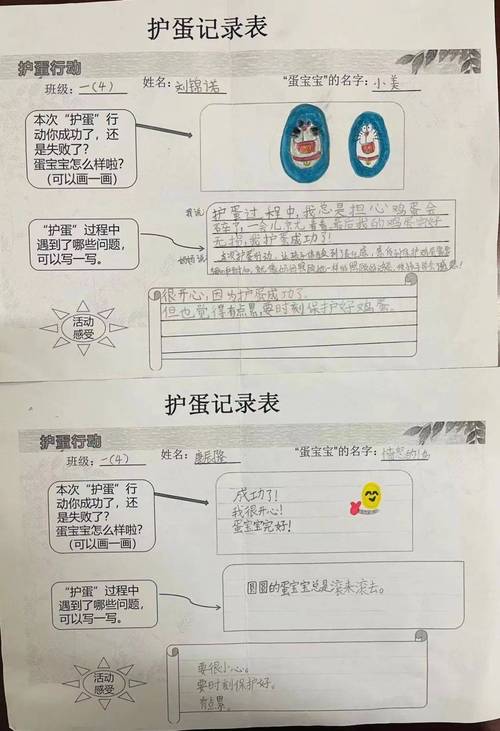 护蛋记录表
护蛋行动
班级：一(4) 姓名：刘锦诺 “蛋宝宝”的名字：小美
本次“护蛋”行
动你成功了，还
是失败了？
蛋宝宝怎么样啦？
（可以画一画）
“护蛋”过程中
遇到了哪些问题，
可以写一写。
我说：护蛋过程中，我总是担心鸡蛋会
碎了，一会儿就去看看，最后我的鸡蛋完好
无损，我护蛋成功了！
妈妈说：
活动
感受
很开心，因为护蛋成功了。
但也觉得有点累，要时刻保护好鸡蛋。
护蛋记录表
护蛋行动
班级：一(4) 姓名： “蛋宝宝”的名字：
本次“护蛋”行
动你成功了，还
是失败了？
蛋宝宝怎么样啦？
（可以画一画）
成功了！
我很开心！
蛋宝宝完好！
“护蛋”过程中
遇到了哪些问题，
可以写一写。
圆圆的蛋宝宝总是滚来滚去。
活动
感受
要很小心。
要时刻保护好。
有点累。